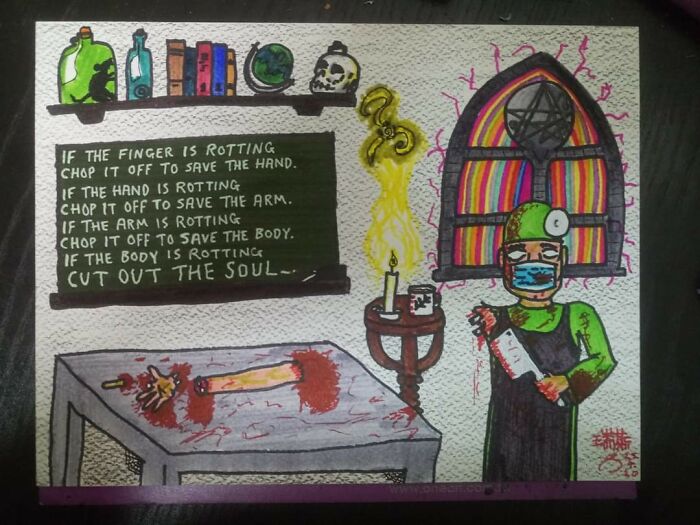 IF THE FINGER IS ROTTING
CHOP IT OFF TO SAVE THE HAND.
IF THE HAND IS ROTTING
CHOP IT OFF TO SAVE THE ARM.
IF THE ARM IS ROTTING
CHOP IT OFF TO SAVE THE BODY.
IF THE BODY IS ROTTING
CUT OUT THE SOUL